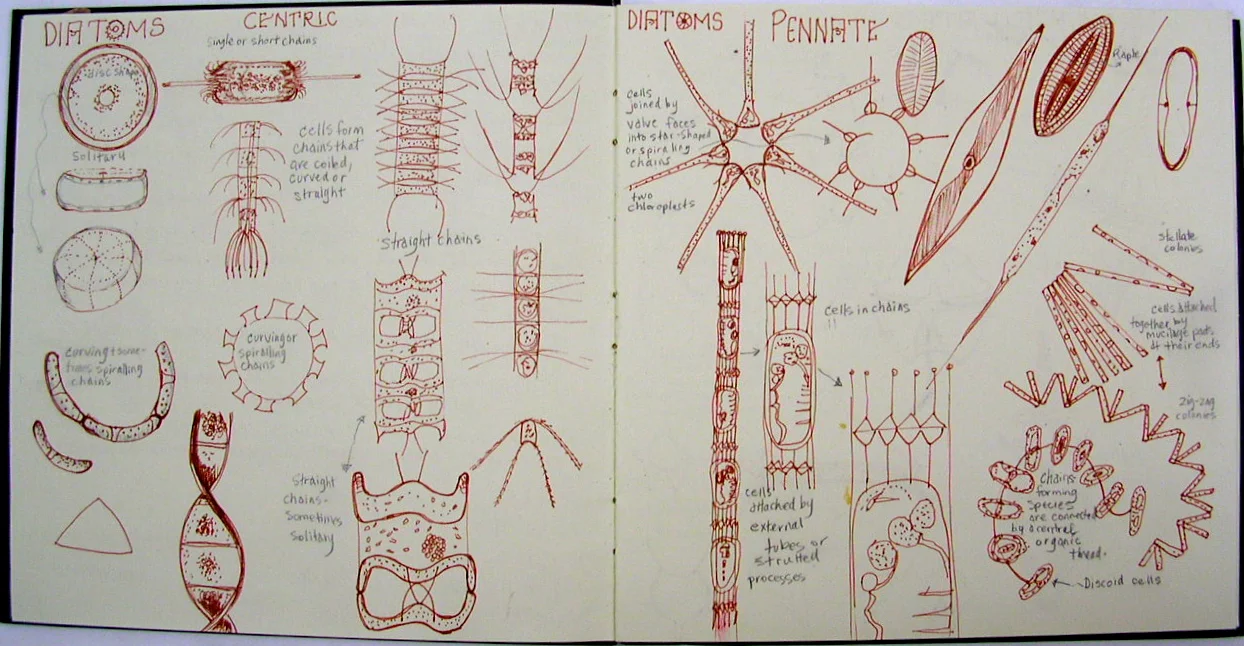 DIATOMS
CENTRIC
single or short chains
disc shape
Solitary
cells form
chains that
are coiled,
curved or
straight
straight chains
curving or
spiralling
chains
curving + some-
times spiralling
chains
straight
chains -
sometimes
solitary
DIATOMS
PENNATE
cells
joined by
valve faces
into star-shaped
or spiraling
chains
two
chloroplasts
cells in chains
cells
attached by
external
tubes or
strutted
processes
stellate
colonies
cells attached
together by
mucilage pads
at their ends
zig-zag
colonies
chains-
forming
species
are connected
by a central
organic
thread.
Discoid cells